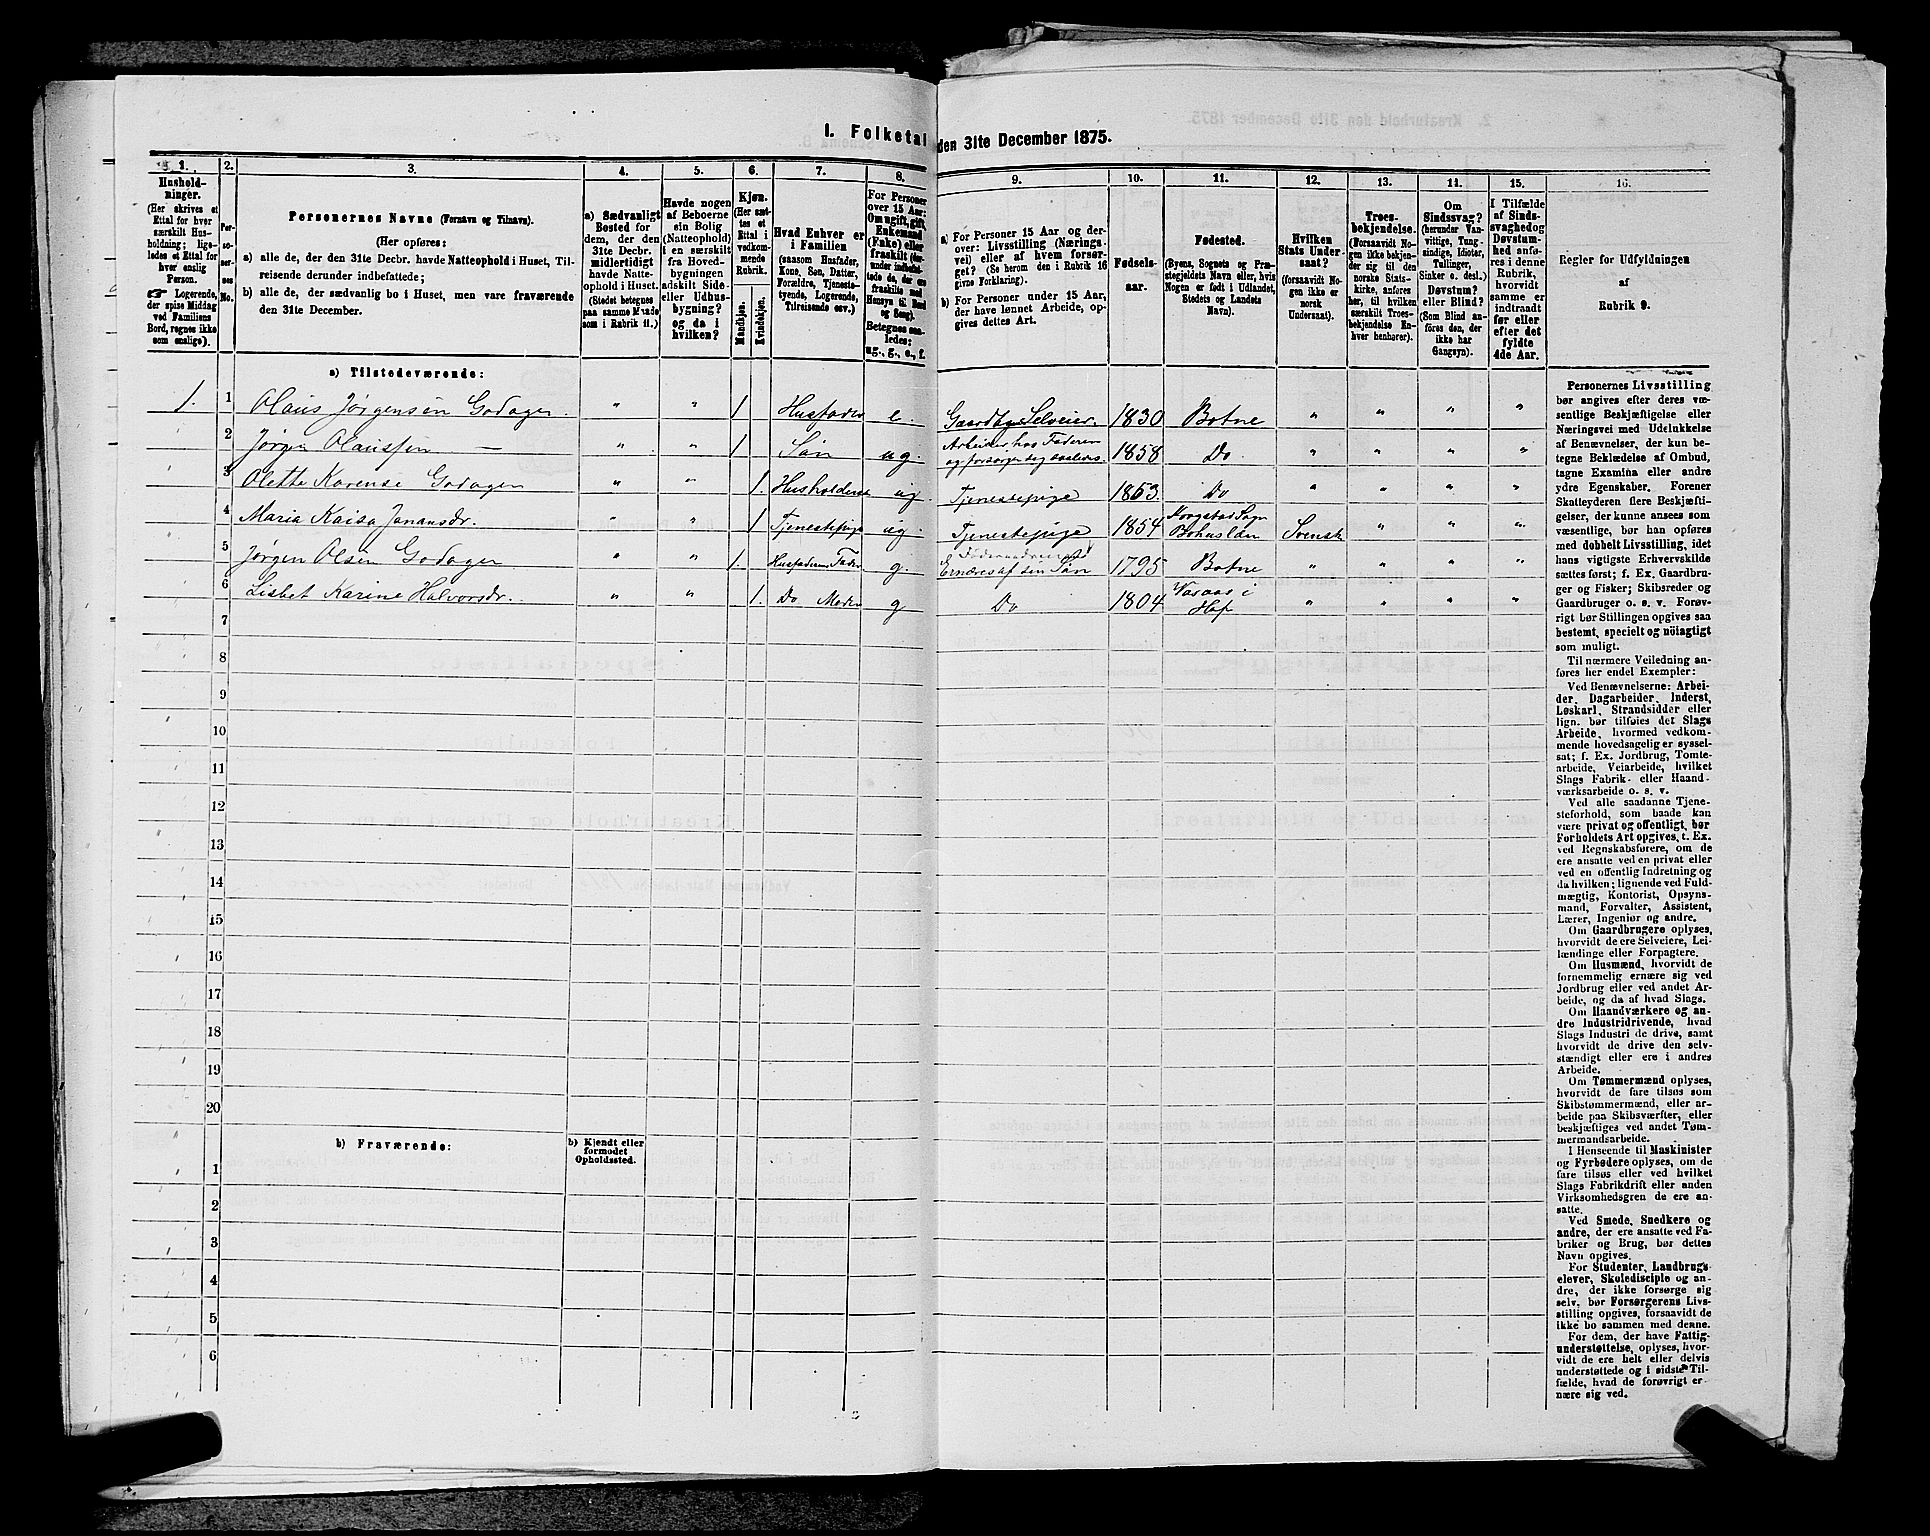 1. Folketal den 31te December 1875.
1. 2. 3. 4. 5. 6. 7. 8. 9. 10. 11. 12. 13. 14. 15. 16.
Hushold-
ninger.
(Her skrives et
Ettal for hver
særskilt Hus-
holdning; lige-
ledes et Ettal for
hver enslig
Person.
☞ Logerende,
der spise Middag
ved Familiens
Bord, regnes ikke
som enslige).
Per-
so-
ner-
nes
No.
Personernes Navne (Fornavn og Tilnavn).
(Her opføres:
a) alle de, der den 31te Decbr. havde Natteophold i Huset, Til-
reisende derunder indbefattede;
b) alle de, der sædvanlig bo i Huset, men vare fraværende
den 31te December.
a) Sædvanligt
Bosted for
dem, der den
31te Decbr.
midlertidigt
havde Natte-
ophold i Huset.
(Stedet betegnes
paa samme Maade
som i Rubrik 11.)
Havde nogen
af Beboerne
sin Bolig
(Natteophold)
i en særskilt
fra Hoved-
bygningen
adskilt Side-
eller Udhus-
bygning?
og da i
hvilken?
Kjøn.
(Her sæt-
tes et
Ettal i
vedkom-
mende
Rubrik.
Mandkjøn.
Kvindekjøn.
Hvad Enhver er
i Familien
(saasom Husfader,
Kone, Søn, Datter,
Forældre, Tjeneste-
tyende, Logerende,
Tilreisende osv.)
For Personer
over 15 Aar:
Om ugift, gift,
Enkemand
(Enke) eller
fraskilt
Betegnes saa-
ledes:
ug., g., e., f.
a) For Personer 15 Aar og der-
over: Livsstilling (Nærings-
vei) eller af hvem forsør-
get? (Se herom den i Rubrik 16
givne Forklaring).
b) For Personer under 15 Aar,
der have lønnet Arbeide, op-
gives dettes Art.
Fødsels-
aar.
Fødested.
(Byens, Sognets og Præ-
stegjeldets Navn eller, hvis
Nogen er født i Udlandet,
Stedets og Landets
Navn).
Hvilken
Stats Under-
saat?
(forsaavidt No-
gen ikke er
norsk
Undersaat).
Troes-
bekjendelse.
(Forsaavidt No-
gen ikke bekjen-
der sig til den
norske Stats-
kirke, anføres
her, til hvilken
særskilt Troes-
bekjendelse En-
hver henhører).
Om
Sindssvag?
(herunder Van-
vittige, Tung-
sindige, Idioter,
Tullinger,
Sinker o. desl.)
Døvstum?
eller Blind?
(Som Blind an-
føres den, der
ikke har
Gangsyn).
I Tilfælde
af Sinds-
svaghed og
Døvstum-
hed anfø-
res i denne
Rubrik,
hvorvidt
samme er
indtraadt
før eller
efter det
fyldte
4de Aar.
Regler for Udfyldningen
af
Rubrik 9.
a) Tilstedeværende:
1. 1 Olaus Jørgensen Godager. " " 1 Husfader e. Gaardbr Selveier. 1830 Botne " " " "
2 Jørgen Olaussen — " " 1 Søn ug. Arbeider hos Faderen
og forsørges 1858 Do " " " "
3 Olette Karense Godager " " 1. Husholderske ug. Tjenestepige 1853. Do " " " "
4 Maria Kaisa Janansdr. " " 1 Tjenestepige ug. Tjenestepige 1854 Bohuslden Svensk " " "
5 Jørgen Olsen Godager " " 1. Husfaderens Fader g. Føderaadsmand
Ernæres af sin Søn 1795 Botne " " " "
6 Lisbet Karine Halvorsdr. " " 1. Do Moder g Do 1804 Vasaas i
Hof " " " "
7
8
9
10
11
12
13
14
15
16
17
18
19
20
b) Fraværende:
b) Kjendt eller
formodet
Opholdssted.
1
2
3
4
5
6
Personernes Livsstilling
bør angives efter deres væ-
sentlige Beskjæftigelse eller
Næringsvei med Udelukkelse
af Benævnelser, der kun be-
tegne Beklædelse af Ombud,
tagne Examina eller andre
ydre Egenskaber. Forener
Skatteyderen flere Beskjæfti-
gelser, der kunne ansees som
væsentlige, bør han opføres
med dobbelt Livsstilling, idet
hans vigtigste Erhvervskilde
sættes først; f. Ex. Gaardbru-
ger og Fisker; Skibsreder og
Gaardbruger o. s. v. Forøv-
rigt bør Stillingen opgives saa
bestemt, specielt og nöiagtigt
som muligt.
Til nærmere Veiledning an-
føres her endel Exempler:
Ved Benævnelserne: Arbei-
der, Dagarbeider, Inderst,
Løskarl, Strandsidder eller
lign. bør tilføies det Slags
Arbeide, hvormed vedkom-
mende hovedsagelig er syssel-
sat; f. Ex. Jordbrug, Tomte-
arbeide, Veiarbeide, hvilket
Slags Fabrik- eller Haand-
værksarbeide o. s. v.
Ved alle saadanne Tjene-
steforhold, som baade kan
være privat og offentligt, bør
Forholdets Art opgives, t. Ex.
ved Regnskabsførere, om de
ere ansatte ved en privat eller
ved en offentlig Indretning og
da hvilken; lignende ved Fuld-
mægtig, Kontorist, Opsyns-
mand, Forvalter, Assistent,
Lærer, Ingeniør og andre.
Om Gaardbrugere oplyses,
hvorvidt de ere Selveiere, Lei-
lændinge eller Forpagtere.
Om Husmænd, hvorvidt de
fornemmelig ernære sig ved
Jordbrug eller ved andet Ar-
beide, og da af hvad Slags.
Om Haandværkere og an-
dre Industridrivende, hvad
Slags Industri de drive, samt
hvorvidt de drive den selv-
stændigt eller ere i andres
Arbeide.
Om Tømmermænd oplyses,
hvorvidt de fare tilsøs som
Skibstømmermænd, eller ar-
beide paa Skibsværfter, eller
beskjæftiges ved andet Tøm-
mermandsarbeide.
I Henseende til Maskinister
og Fyrbødere oplyses, om de
fare tilsøs eller ved hvilket
Slags Fabrikdrift eller anden
Virksomhedsgren de ere an-
satte.
Ved Smede, Snedkere og
andre, der ere ansatte ved Fa-
briker og Brug, bør dettes
Navn opgives.
For Studenter, Landbrugs-
elever, Skoledisciple og an-
dre, der ikke forsørge sig
selv, bør Forsørgerens Livs-
stilling opgives, forsaavidt de
ikke bo sammen med denne.
For dem, der have Fattig-
understøttelse, oplyses, hvor-
vidt de ere helt eller delvis
understøttede og i sidste Til-
fælde, hvad de forøvrigt er-
nære sig ved.